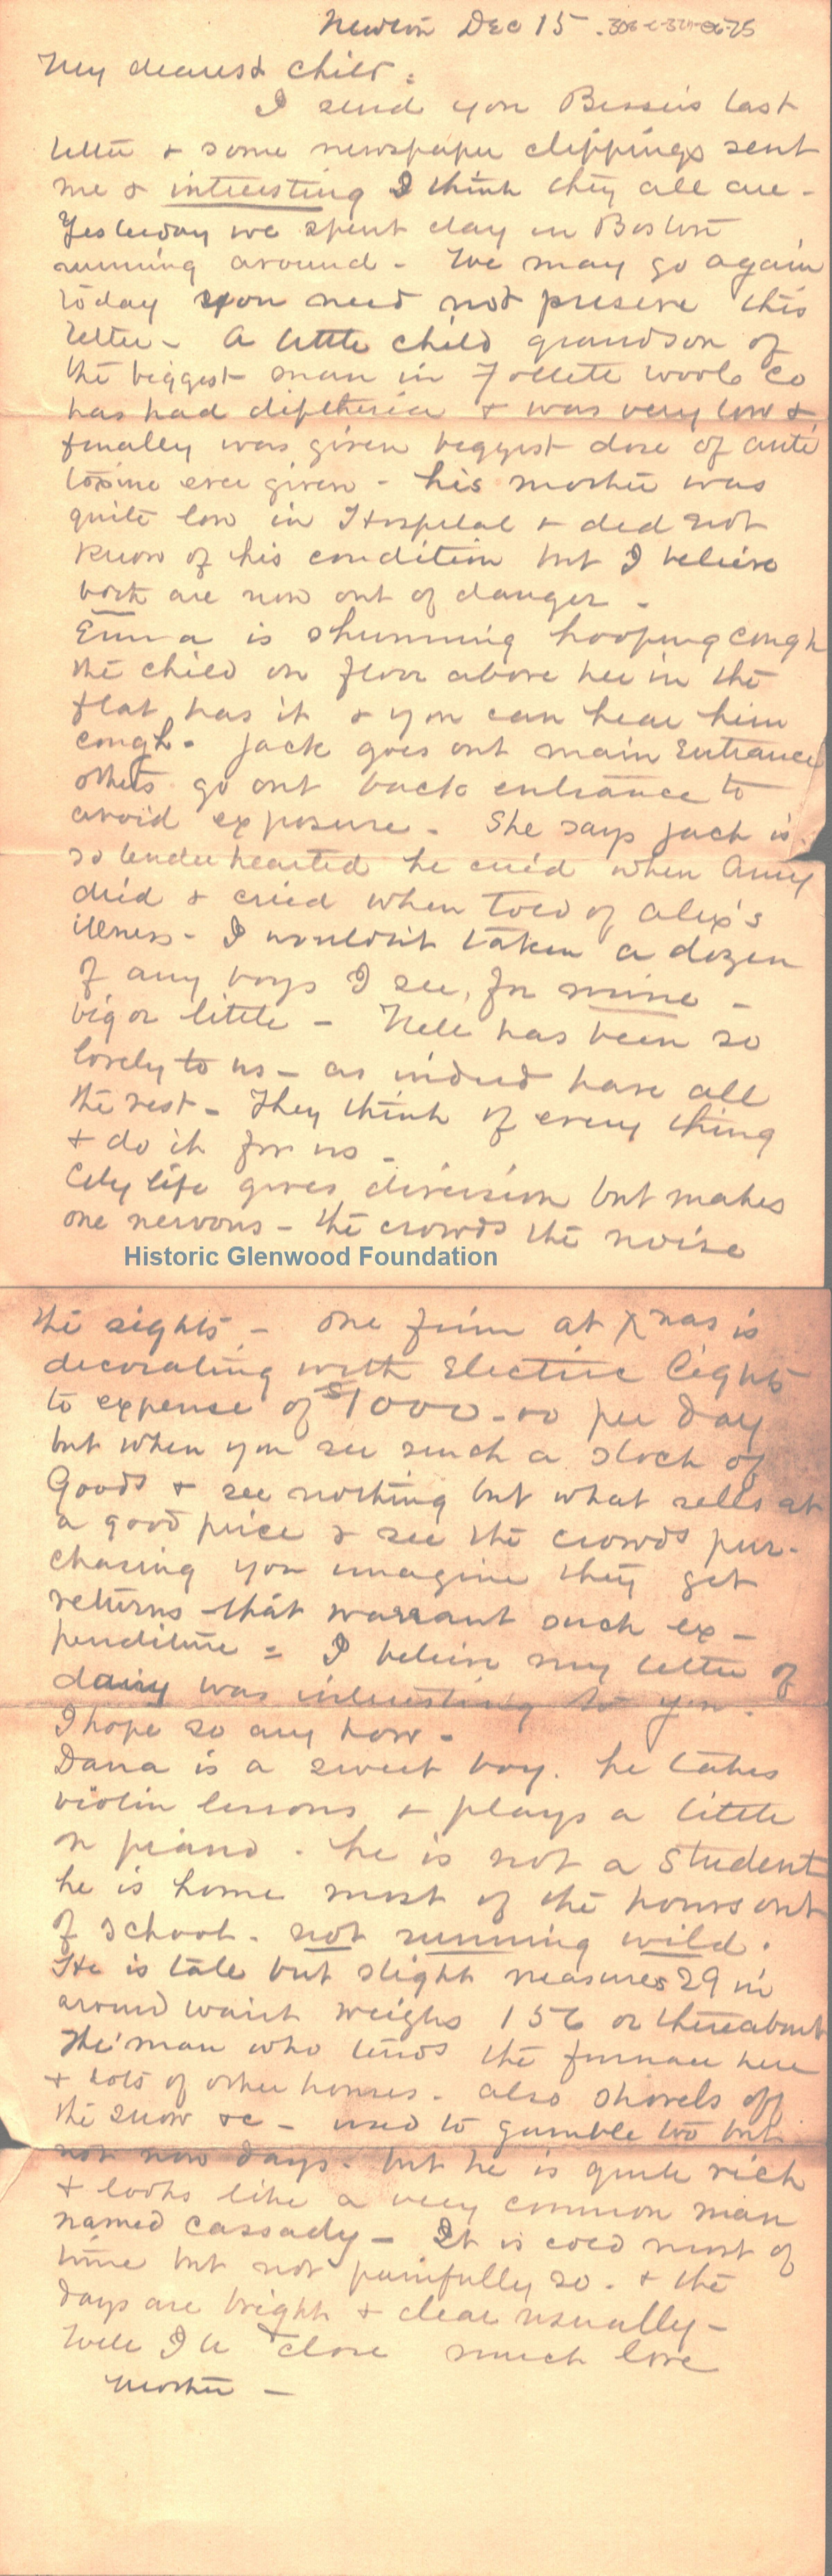 Newton Dec 15.
My dearest child:
I send you Bessie's last
letter & some newspaper clippings sent
me & interesting I think they all are -
Yesterday we spent day in Boston
running around - We may go again
today you need not preserve this
letter - A little child grandson of
the biggest man in wool Co
has had diptheria & was very low &
finally was given biggest dose of anti
toxine ever given - his mother was
quite low in Hospital & did not
know of his condition but I believe
both are now out of danger -
Emma is shunning hooping cough
the child on floor above her in the
flat has it & you can hear him
cough. Jack goes out main Entrance
others go out back entrance to
avoid exposure - She says Jack is
so tender hearted he cried when
died & cried when told of Alex's
illness - I wouldn't taken a dozen
of any boys I see, for mine -
big or little - Nell has been so
lovely to us - as indeed have all
the rest - They think of every thing
& do it for us -
City life gives diversion but makes
one nervous - the crowds the noise
Historic Glenwood Foundation
the sights - one firm at Xmas is
decorating with Electric lights
to expense of $1000.00 per day
but when you see such a stock of
Goods & see nothing but what sells at
a good price & see the crowds pur-
chasing you imagine they get
returns that warrant such ex-
penditure = I believe my letter of
dairy was interesting to you.
I hope so any how -
Dana is a sweet boy. he takes
violin lessons & plays a little
on piano. he is not a student
he is home most of the hours out
of school - not running wild.
He is tall but slight measures 29 in
around waist weighs 156 or thereabout
The man who tends the furnace here
& lots of other houses - also shovels off
the snow &c - used to gamble too but
not now days. but he is quite rich
& looks like a very common man
named Cassady - It is cold most of
time but not painfully so. & the
days are bright & clear usually -
Well I'll close much love
Mother -